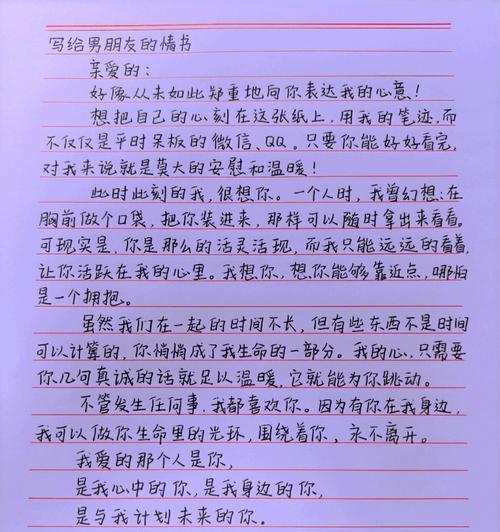 写给男朋友的情书
亲爱的：
好像从未如此郑重地向你表达我的心意！
想把自己的心刻在这张纸上，用我的笔迹，而
不仅仅是平时呆板的微信、QQ。只要你能好好看完，
对我来说就是莫大的安慰和温暖！
此时此刻的我，很想你。一个人时，我曾幻想：在
胸前做个口袋，把你装进来，那样可以随时拿出来看看。
可现实是，你是那么的活灵活现，而我只能远远的看着，
让你活跃在我的心里。我想你，想你能够靠近点，哪怕
是一个拥抱。
虽然我们在一起的时间不长，但有些东西不是时间
可以计算的，你悄悄成了我生命的一部分。我的心，只需要
你几句真诚的话就足以温暖，它就能为你跳动。
不管发生任何事，我都喜欢你。因为有你在我身边，
我可以做你生命里的光环，围绕着你，永不离开。
我爱的那个人是你，
是我心中的你，是我身边的你，
是与我计划未来的你。